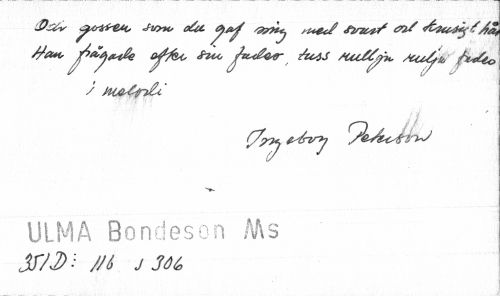 Och gossen som du gaf mig med svart och krusigt hår
Han frågade efter sin fader, tuss rulljn rulja fader
i melodi
Ingeborg Peterson
ULMA Bondeson Ms
351 D: 116 s 306